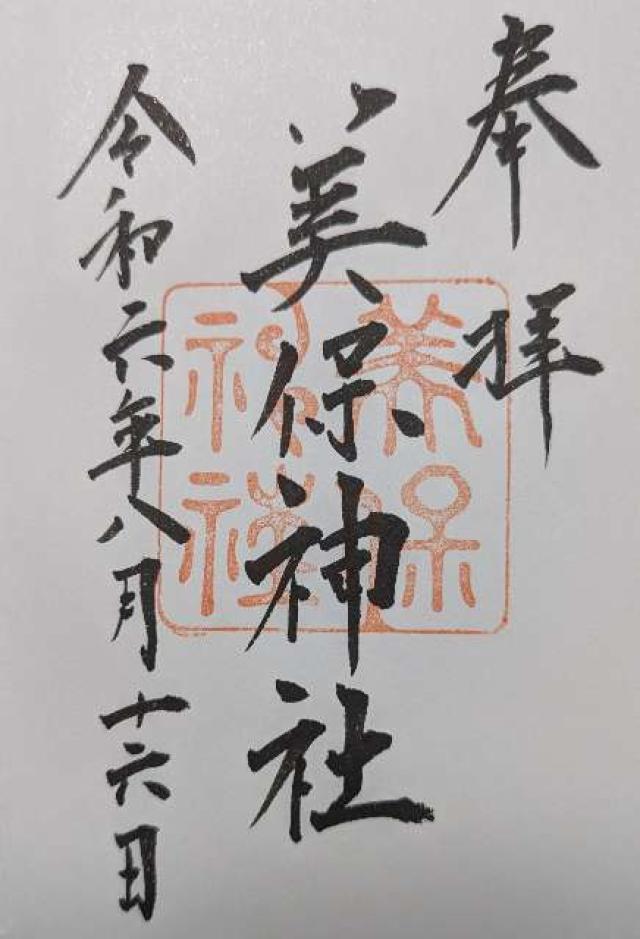 奉拝
美保神社
美保神社
令和六年八月十六日